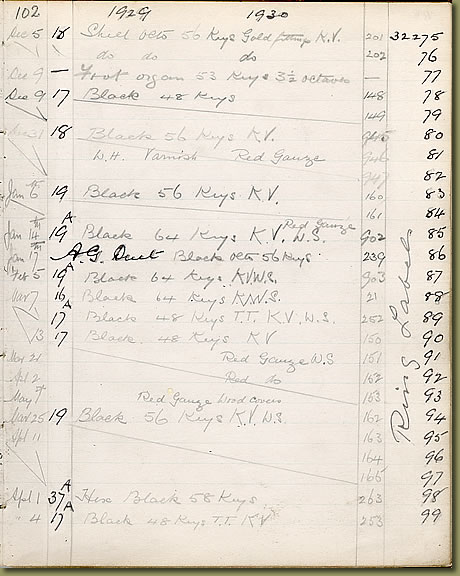 102 1929 1930
Dec 5 18 Shell Octo 50 Keys Gold K.V. 201 32275
do do do 202 76
Dec 9 — Foot organ 53 Keys 3½ octaves — 77
Dec 9 17 Black 48 Keys 148 78
149 79
18 Black 56 Keys K.V. 80
W.H. Varnish Red Gauze 81
82
Jan 6th 19 Black 56 Keys K.V. 160 83
161 84
Jan 14th 19 A Black 64 Keys K.V. W.S. Red Gauze 902 85
Jan 17 A.G. Duet Black Octo 56 Keys 239 86
Feb 5 19 A Black 64 Keys K.V.W.S. 903 87
Mar 7 16 A Black 64 Keys K.V.W.S. 21 88
17 Black 48 Keys T.T. K.V. W.S. 252 89
13 17 Black 48 Keys K.V 150 90
May 21 Red Gauze W.S 151 91
Apl 2 Red do 152 92
May 9 Red Gauze Wood covers 153 93
Mar 25 19 Black 56 Keys K.V. W.S. 162 94
Apl 11 163 95
164 96
165 97
Apl 1 37 A Hex Black 58 Keys 263 98
" 4 17 A Black 48 Keys T.T. K.V 253 99
Ring Labels